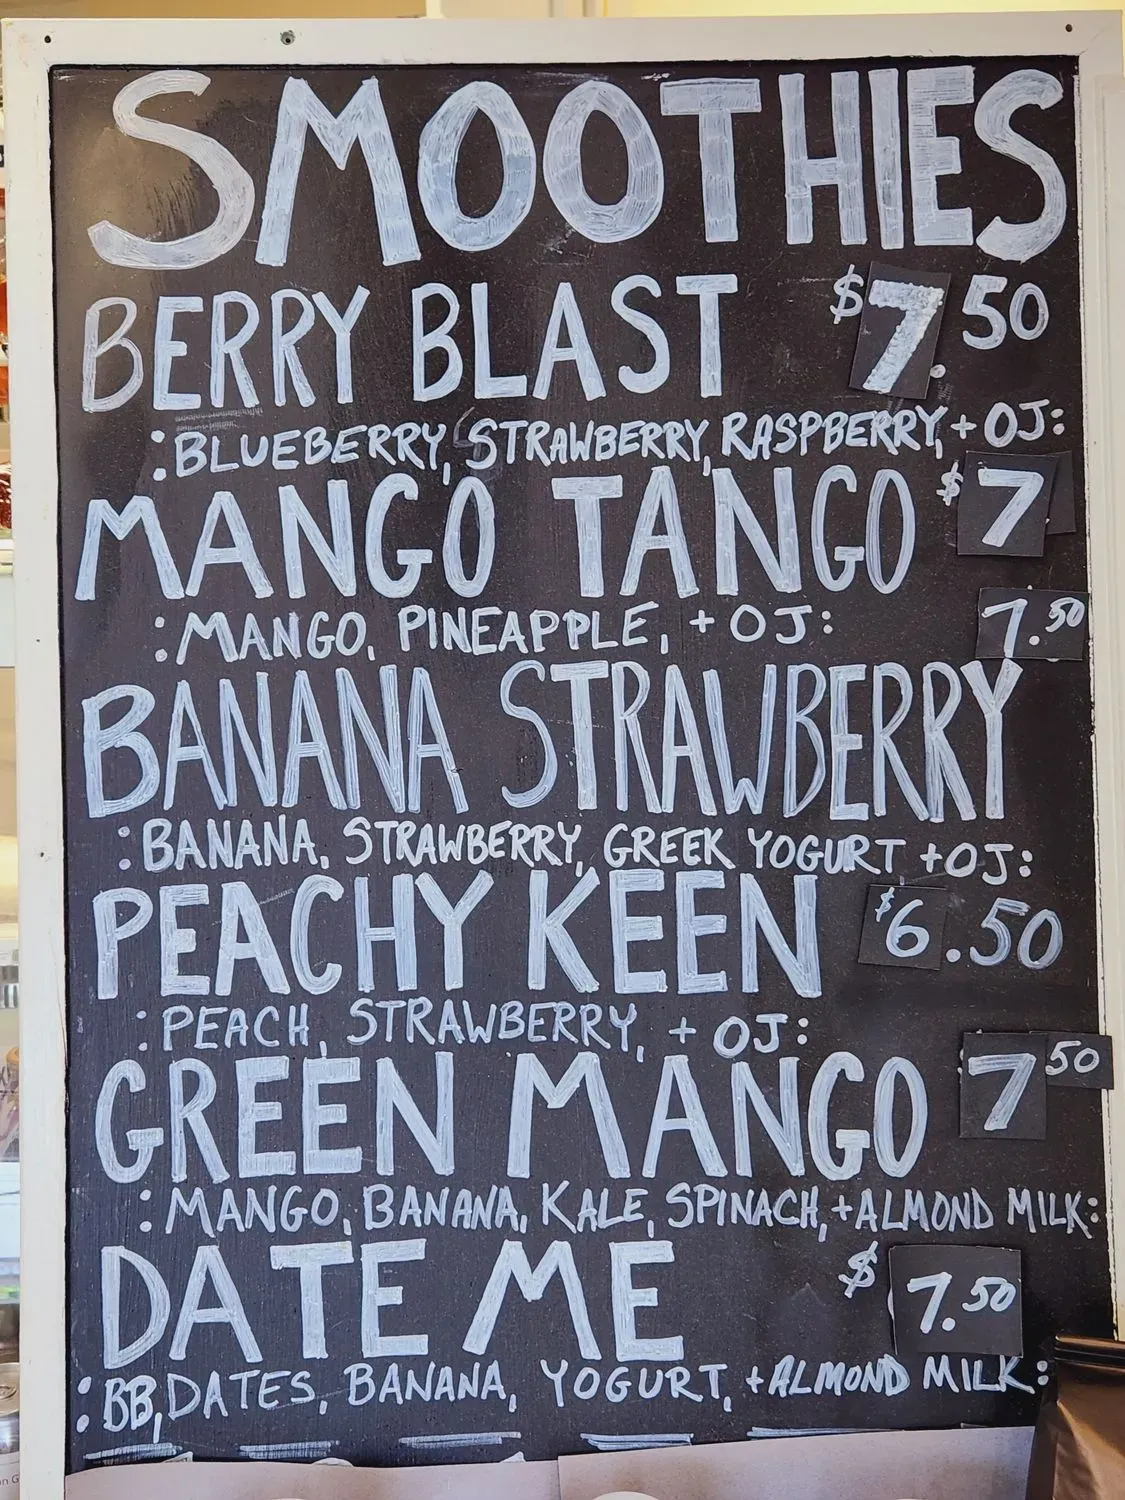 SMOOTHIES
BERRY BLAST $7.50
:BLUEBERRY, STRAWBERRY, RASPBERRY, + OJ:
MANGO TANGO $7
:MANGO, PINEAPPLE, + OJ:
7.50
BANANA STRAWBERRY
:BANANA, STRAWBERRY, GREEK YOGURT + OJ:
PEACHY KEEN $6.50
:PEACH, STRAWBERRY, + OJ:
GREEN MANGO 7 50
:MANGO, BANANA, KALE, SPINACH, + ALMOND MILK:
DATE ME $7.50
:BB, DATES, BANANA, YOGURT, + ALMOND MILK: